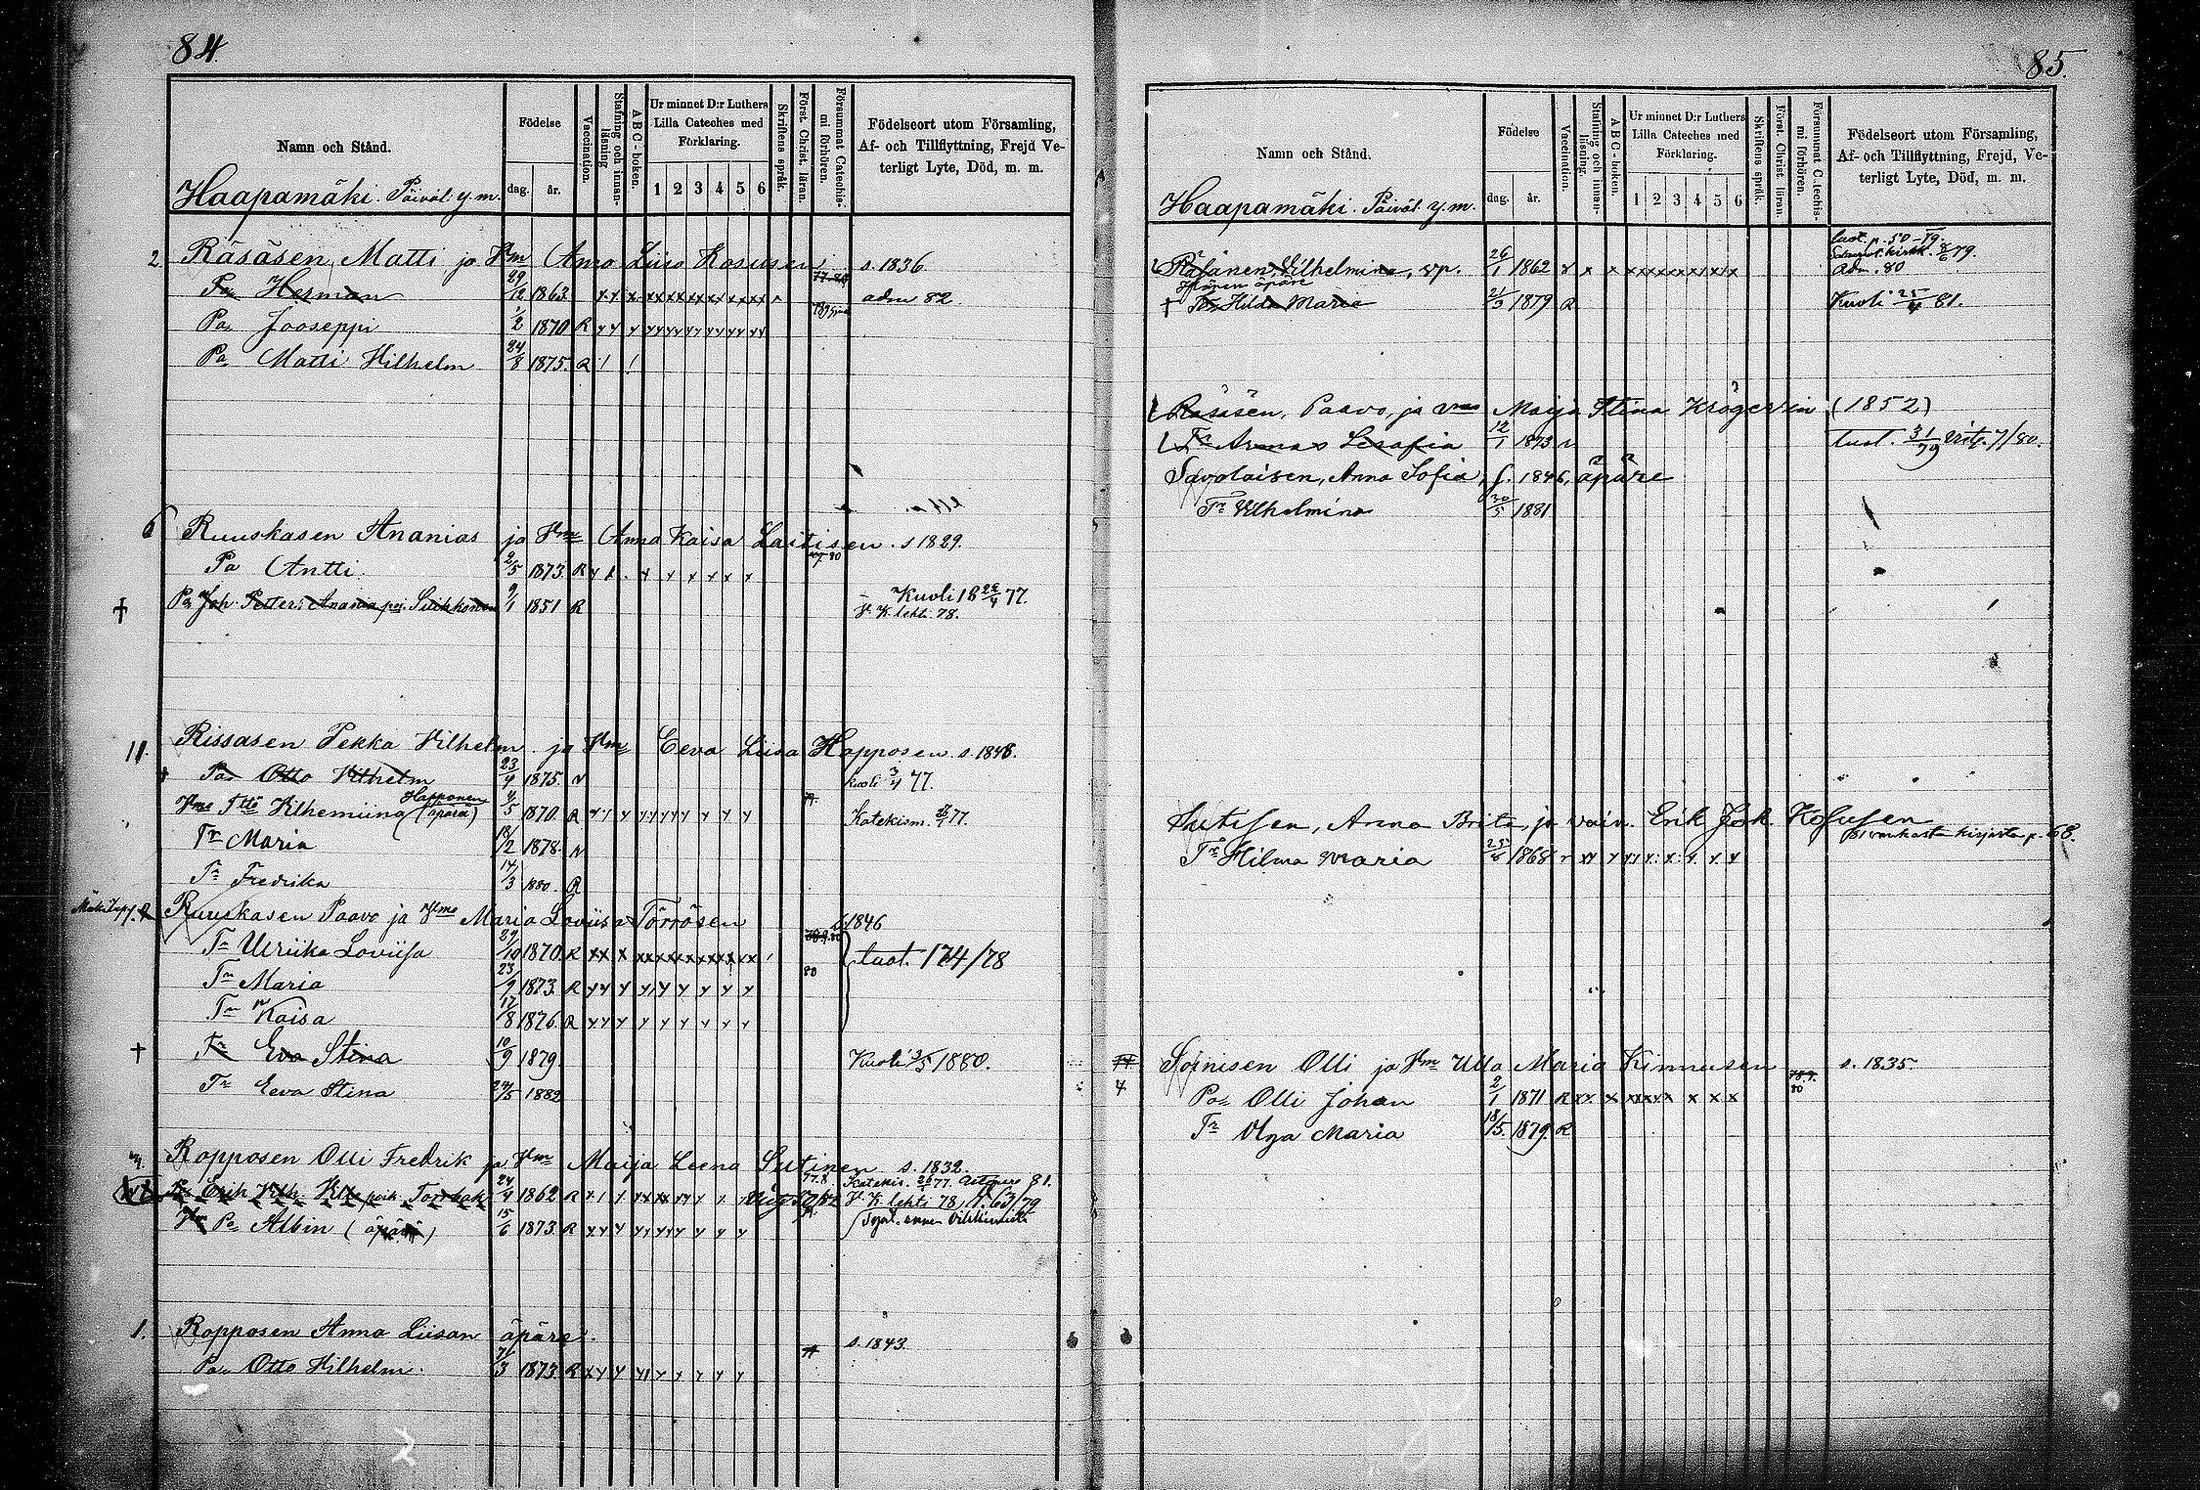 84.
Namn och Stånd.
Födelse
dag.
år.
Vaccination.
Stafning och innan-
läsning
A B C - boken.
Ur minnet D:r Luthers
Lilla Cateches med
Förklaring.
1 2 3 4 5 6
Skriftens språk.
Först. Christ. läran.
Försummat Catechis-
mi förhören.
Födelseort utom Församling,
Af- och Tillflyttning, Frejd Ve-
terligt Lyte, Död, m. m.
Haapamäki. Päiväl. y.m.
2 Räsäsen, Matti ja Vm Anna Liisa Kosusen s. 1836.
Pa Herman 29/12 1863 adm 82.
Pa Jooseppi 1/2 1870 R
Pa Matti Vilhelm 24/8 1875. R
6 Ruuskasen Ananias ja Vm Anna Kaisa Laitisen. s 1829.
Pa Antti. 2/5 1873. R
† Pa Joh. Petter, Anania poi. Suhkonen 9/1 1851 R Kuoli 18 22/4 77.
V. K. lehti 78.
11. Rissasen Pekka Vilhelm. ja Vm Eeva Liisa Happosen. s. 1848.
† Pa Otto Vilhelm 23/4 1875. kuoli 3/4 77.
Happonen
Vilhemiina (äpärä) 4/5 1870. R Katekism. 77.
Tr Maria 18/2 1878.
Tr Fredrika 14/3 1880. R
Ruuskasen Paavo ja Vm Maria Loviisa Törrösen s 1846
Tr Ulriika Loviisa 29/10 1870. R tuot. 174/78
Tr Maria 23/9 1873. R 80
Tr Kaisa 17/8 1876. R
† Tr Eva Stina 10/9 1879. Kuoli 2/5 1880.
Tr Eeva Stina 24/5 1882
Ropposen Olli Fredrik ja Vm Maija Leena Sutinen s. 1832.
Erik Vilh. Ville poik 24/4 1862 R V. K. lehti 78, N. 63/79
Pa Albin (äpärä) 15/6 1873 R
1. Ropposen Anna Liisan äpäre. s. 1843.
Pa Otto Vilhelm. 7/3 1873. R
85.
Namn och Stånd.
Födelse
dag.
år.
Vaccination.
Stafning och innan-
läsning.
A B C - boken.
Ur minnet D:r Luthers
Lilla Cateches med
Förklaring.
1 2 3 4 5 6
Skriftens språk.
Först. Christ. läran.
Försummat Catechis-
mi förhören.
Födelseort utom Församling,
Af- och Tillflyttning, Frejd, Ve-
terligt Lyte, Död, m. m.
Haapamäki. Päiväl. y.m.
Räsänen, Vilhelmina, vp. 26/1 1862 adm. 80
† Tr Hilda Maria 21/3 1879 R Kuoli 25/4 81.
Räsäsen, Paavo, ja Maija Stina Krögerin (1852)
Tr Serafia 12/1 1873 tuot. 31/79
Savolaisen, Anna Sofia, s. 1846, äpäre
Tr Vilhelmina 30/5 1881
Sutisen, Anna Brita, ja vain. Erik Joh. Kosusen
vanhasta kirjasta p. 68.
Tr Hilma Maria 1868
4 Soinisen Olli ja Vm Ulla Maria Kinnusen s. 1835.
Pa Olli Johan 2/1 1871 R 80
Tr Olga Maria 18/5. 1879. R
2